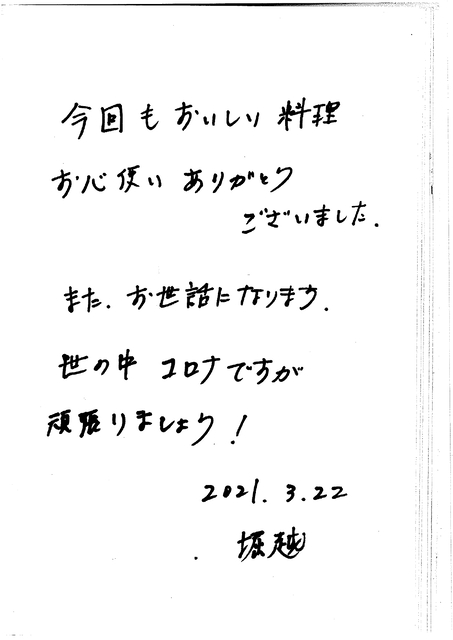 今回もおいしい料理
お心使いありがとう
ございました.
また.お世話になります.
世の中 コロナですが
頑張りましょう!
2021.3.22
堀越